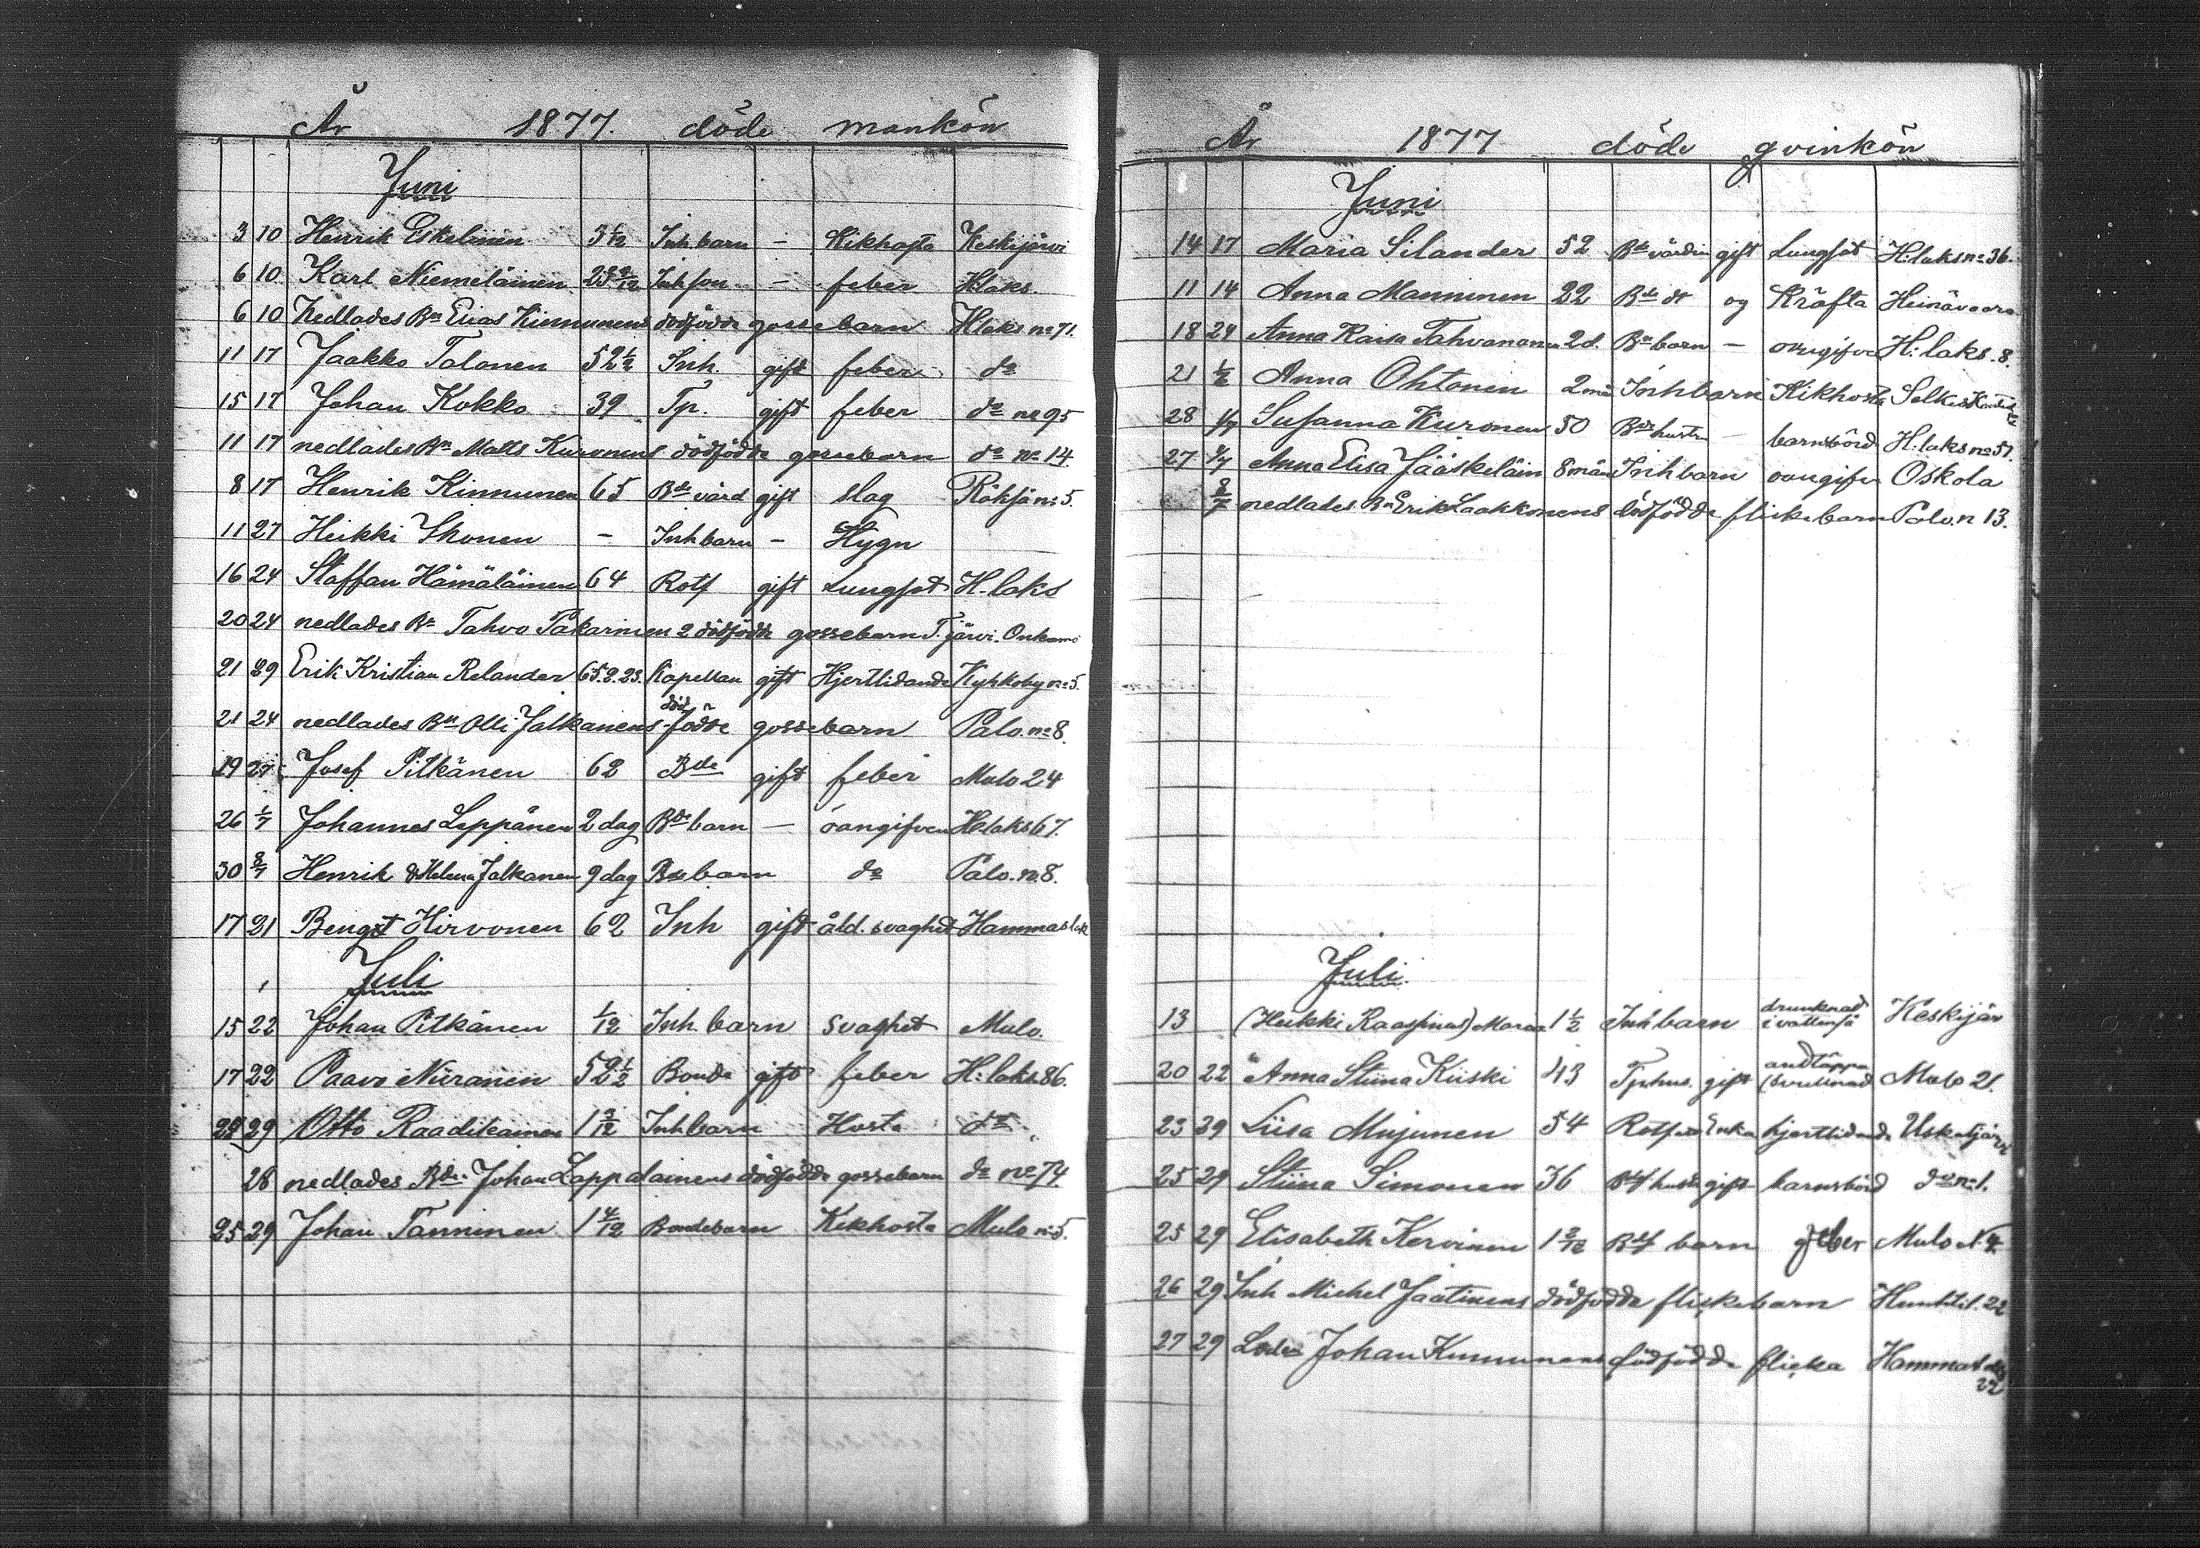 År 1877. döde mankön
Juni
3 10 Henrik Eskelinen 3 1/12 Inh barn - Kikhosta Keskijärvi
6 10 Karl Niemeläinen 23 8/12 Inh son - feber H:laks.
6 10 Nedlades Bn Elias Kinnunens dödfödde gossebarn H:laks no 71.
11 17 Jaakko Talonen 52 1/2 Inh. gift feber do
15 17 Johan Kokko 39 Tp. gift feber do no 95
11 17 nedlades Bn Matts Kuronens dödfödde gossebarn do no 14.
8 17 Henrik Kinnunen 65 Bde värd gift slag Röksä no 5.
11 27 Heikki Ikonen - Inh barn - Hygn
16 24 Staffan Hämäläinen 64 Rotf gift Lungsot H-laks
20 24 nedlades Bn Tahvo Pakarinen 2 dödfödde gossebarn T.järvi. Onkamo
21 29 Erik Kristian Relander 65.2.23. Kapellan gift Hjertlidande Kyhkoby no 5.
21 24 nedlades Bn Olli Jalkanens död födde gossebarn Palo. no 8.
19 27 Josef Pitkänen 62 Bde gift feber Mulo 24
26 1/7 Johannes Leppänen 2 dag Bde barn - oangifven H:laks 67.
30 8/7 Henrik & Helena Jalkanen 9 dag Bde barn do Palo. no 8.
17 21 Bengt Hirvonen 62 Inh gift åld. svaghet Hammaslak
Juli
15 22 Johan Pitkänen 1/12 Inh barn svaghet Mulo.
17 22 Paavo Niiranen 52 1/2 Bonde gift feber H:laks 86.
29 Otto Raadikainen 1 2/12 Inh barn Hosta do
28 nedlades Bde Johan Lappalainens dödfödde gossebarn do no 74.
25 29 Johan Tanninen 1 4/12 Bondebarn Kikhosta Mulo no 5.
År 1877 döde qvinkön
Juni
14 17 Maria Silander 52 Bde värdin gift Lungsot H:laks no 36.
11 14 Anna Manninen 22 Bde dt og Kräfta Heinävaara
18 24 Anna Kaisa Tahvanainen 2 d. Bn barn - oangifven H:laks. 8
21 1/7 Anna Ohtonen 2 mån Inh barn Kikhosta Selkes
28 1/7 Susanna Kuronen 30 Bde hustru - barnsbörd H:laks no 51.
27 1/7 Anna Elisa Jääskeläin 8 mån Inh barn oangifven Oskola
8/7 nedlades Bn Erik Laakkonens dödfödde flickebarn Palo. n 13.
Juli.
13 (Heikki Raasinas) Maria 1 1/2 Inh barn drunknat i vattenså Keskijär
20 22 Anna Stiina Kiiski 43 Tphus. gift andtäppa Mulo 21.
23 29 Liisa Mujunen 54 Rotf Enka hjertlidande Uskaljärvi
25 29 Stiina Simonen 36 Bde hustru gift barnsbörd do no 1.
25 29 Elisabeth Kervinen 1 2/12 barn feber Mulo N 4.
26 29 Inh Michel Jaatinens dödfödde flickebarn 22
27 29 Johan Kinnunens dödfödde flicka Hammaslaks 22